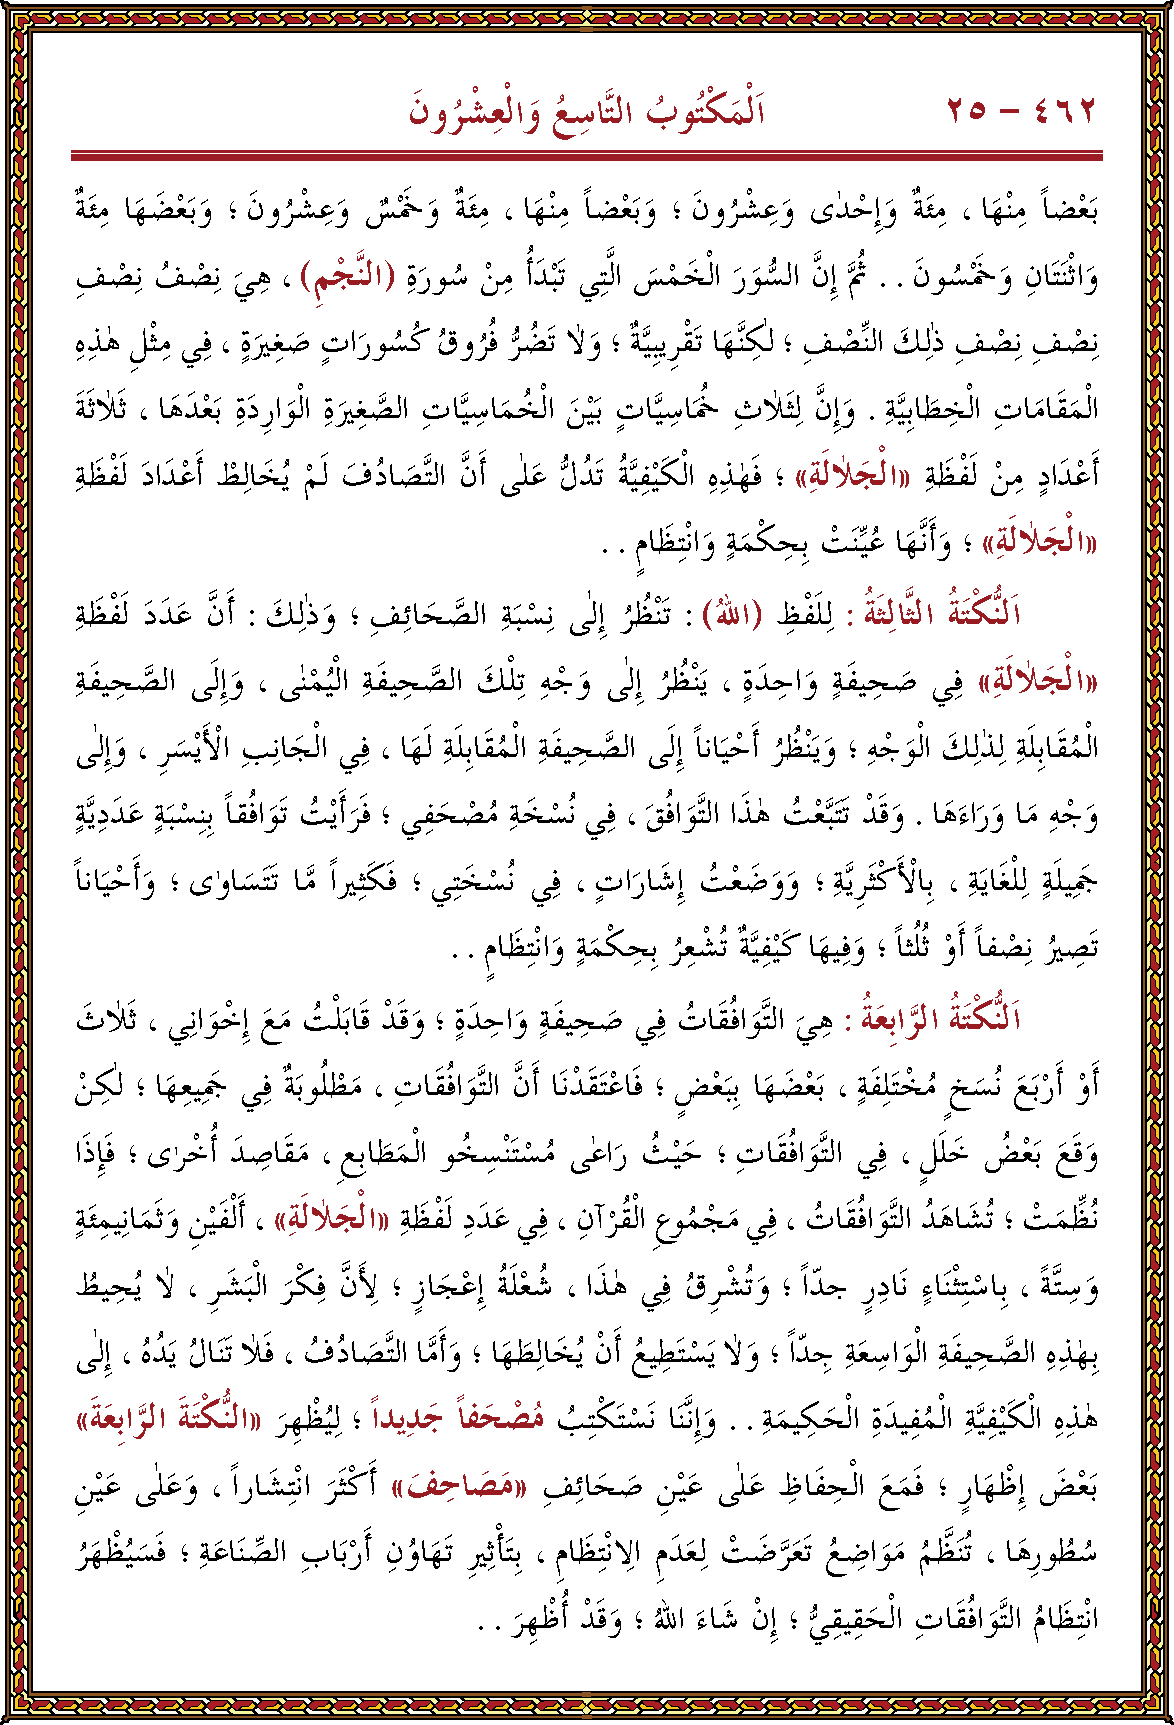 ٤٦٢ – ٢٥
اَلْمَكْتُوبُ التَّاسِعُ وَالْعِشْرُونَ
بَعْضاً مِنْهَا ، مِئَةٌ وَإِحْدٰى وَعِشْرُونَ ؛ وَبَعْضاً مِنْهَا ، مِئَةٌ وَخَمْسٌ وَعِشْرُونَ ؛ وَبَعْضَهَا مِئَةٌ
وَاثْنَتَانِ وَخَمْسُونَ . . ثُمَّ إِنَّ السُّوَرَ الْخَمْسَ الَّتِي تَبْدَأُ مِنْ سُورَةِ (النَّجْمِ) ، هِيَ نِصْفُ نِصْفِ
نِصْفِ نِصْفِ ذٰلِكَ النِّصْفِ ؛ لٰكِنَّهَا تَقْرِيبِيَّةٌ ؛ وَلَا تَضُرُّ فُرُوقُ كُسُورَاتٍ صَغِيرَةٍ ، فِي مِثْلِ هٰذِهِ
الْمَقَامَاتِ الْخِطَابِيَّةِ . وَإِنَّ لِثَلَاثِ خُمَاسِيَّاتٍ بَيْنَ الْخُمَاسِيَّاتِ الصَّغِيرَةِ الْوَارِدَةِ بَعْدَهَا ، ثَلَاثَةَ
أَعْدَادٍ مِنْ لَفْظَةِ «الْجَلَالَةِ» ؛ فَهٰذِهِ الْكَيْفِيَّةُ تَدُلُّ عَلٰى أَنَّ التَّصَادُفَ لَمْ يُخَالِطْ أَعْدَادَ لَفْظَةِ
«الْجَلَالَةِ» ؛ وَأَنَّهَا عُيِّنَتْ بِحِكْمَةٍ وَانْتِظَامٍ . .
اَلنُّكْتَةُ الثَّالِثَةُ : لِلَفْظِ (اللهُ) : تَنْظُرُ إِلٰى نِسْبَةِ الصَّحَائِفِ ؛ وَذٰلِكَ : أَنَّ عَدَدَ لَفْظَةِ
«الْجَلَالَةِ» فِي صَحِيفَةٍ وَاحِدَةٍ ، يَنْظُرُ إِلٰى وَجْهِ تِلْكَ الصَّحِيفَةِ الْيُمْنٰى ، وَإِلَى الصَّحِيفَةِ
الْمُقَابِلَةِ لِذٰلِكَ الْوَجْهِ ؛ وَيَنْظُرُ أَحْيَاناً إِلَى الصَّحِيفَةِ الْمُقَابِلَةِ لَهَا ، فِي الْجَانِبِ الْأَيْسَرِ ، وَإِلٰى
وَجْهِ مَا وَرَاءَهَا . وَقَدْ تَتَبَّعْتُ هٰذَا التَّوَافُقَ ، فِي نُسْخَةِ مُصْحَفِي ؛ فَرَأَيْتُ تَوَافُقاً بِنِسْبَةٍ عَدَدِيَّةٍ
جَمِيلَةٍ لِلْغَايَةِ ، بِالْأَكْثَرِيَّةِ ؛ وَوَضَعْتُ إِشَارَاتٍ ، فِي نُسْخَتِي ؛ فَكَثِيراً مَّا تَتَسَاوٰى ؛ وَأَحْيَاناً
تَصِيرُ نِصْفاً أَوْ ثُلُثاً ؛ وَفِيهَا كَيْفِيَّةٌ تُشْعِرُ بِحِكْمَةٍ وَانْتِظَامٍ . .
اَلنُّكْتَةُ الرَّابِعَةُ : هِيَ التَّوَافُقَاتُ فِي صَحِيفَةٍ وَاحِدَةٍ ؛ وَقَدْ قَابَلْتُ مَعَ إِخْوَانِي ، ثَلَاثَ
أَوْ أَرْبَعَ نُسَخٍ مُخْتَلِفَةٍ ، بَعْضَهَا بِبَعْضٍ ؛ فَاعْتَقَدْنَا أَنَّ التَّوَافُقَاتِ ، مَطْلُوبَةٌ فِي جَمِيعِهَا ؛ لٰكِنْ
وَقَعَ بَعْضُ خَلَلٍ ، فِي التَّوَافُقَاتِ ؛ حَيْثُ رَاعٰى مُسْتَنْسِخُو الْمَطَابِعِ ، مَقَاصِدَ أُخْرٰى ؛ فَإِذَا
نُظِّمَتْ ؛ تُشَاهَدُ التَّوَافُقَاتُ ، فِي مَجْمُوعِ الْقُرْآنِ ، فِي عَدَدِ لَفْظَةِ «الْجَلَالَةِ» ، أَلْفَيْنِ وَثَمَانِيمِئَةٍ
وَسِتَّةً ، بِاسْتِثْنَاءٍ نَادِرٍ جدّاً ؛ وَتُشْرِقُ فِي هٰذَا ، شُعْلَةُ إِعْجَازٍ ؛ لِأَنَّ فِكْرَ الْبَشَرِ ، لَا يُحِيطُ
بِهٰذِهِ الصَّحِيفَةِ الْوَاسِعَةِ جِدّاً ؛ وَلَا يَسْتَطِيعُ أَنْ يُخَالِطَهَا ؛ وَأَمَّا التَّصَادُفُ ، فَلَا تَنَالُ يَدُهُ ، إِلٰى
هٰذِهِ الْكَيْفِيَّةِ الْمُفِيدَةِ الْحَكِيمَةِ . . وَإِنَّنَا نَسْتَكْتِبُ مُصْحَفاً جَدِيداً ؛ لِيُظْهِرَ «النُّكْتَةَ الرَّابِعَةَ»
بَعْضَ إِظْهَارٍ ؛ فَمَعَ الْحِفَاظِ عَلٰى عَيْنِ صَحَائِفِ «مَصَاحِفَ» أَكْثَرَ انْتِشَاراً ، وَعَلٰى عَيْنِ
سُطُورِهَا ، تُنَظَّمُ مَوَاضِعُ تَعَرَّضَتْ لِعَدَمِ الِانْتِظَامِ ، بِتَأْثِيرِ تَهَاوُنِ أَرْبَابِ الصِّنَاعَةِ ؛ فَسَيُظْهَرُ
انْتِظَامُ التَّوَافُقَاتِ الْحَقِيقِيُّ ؛ إِنْ شَاءَ اللهُ ؛ وَقَدْ أُظْهِرَ . .